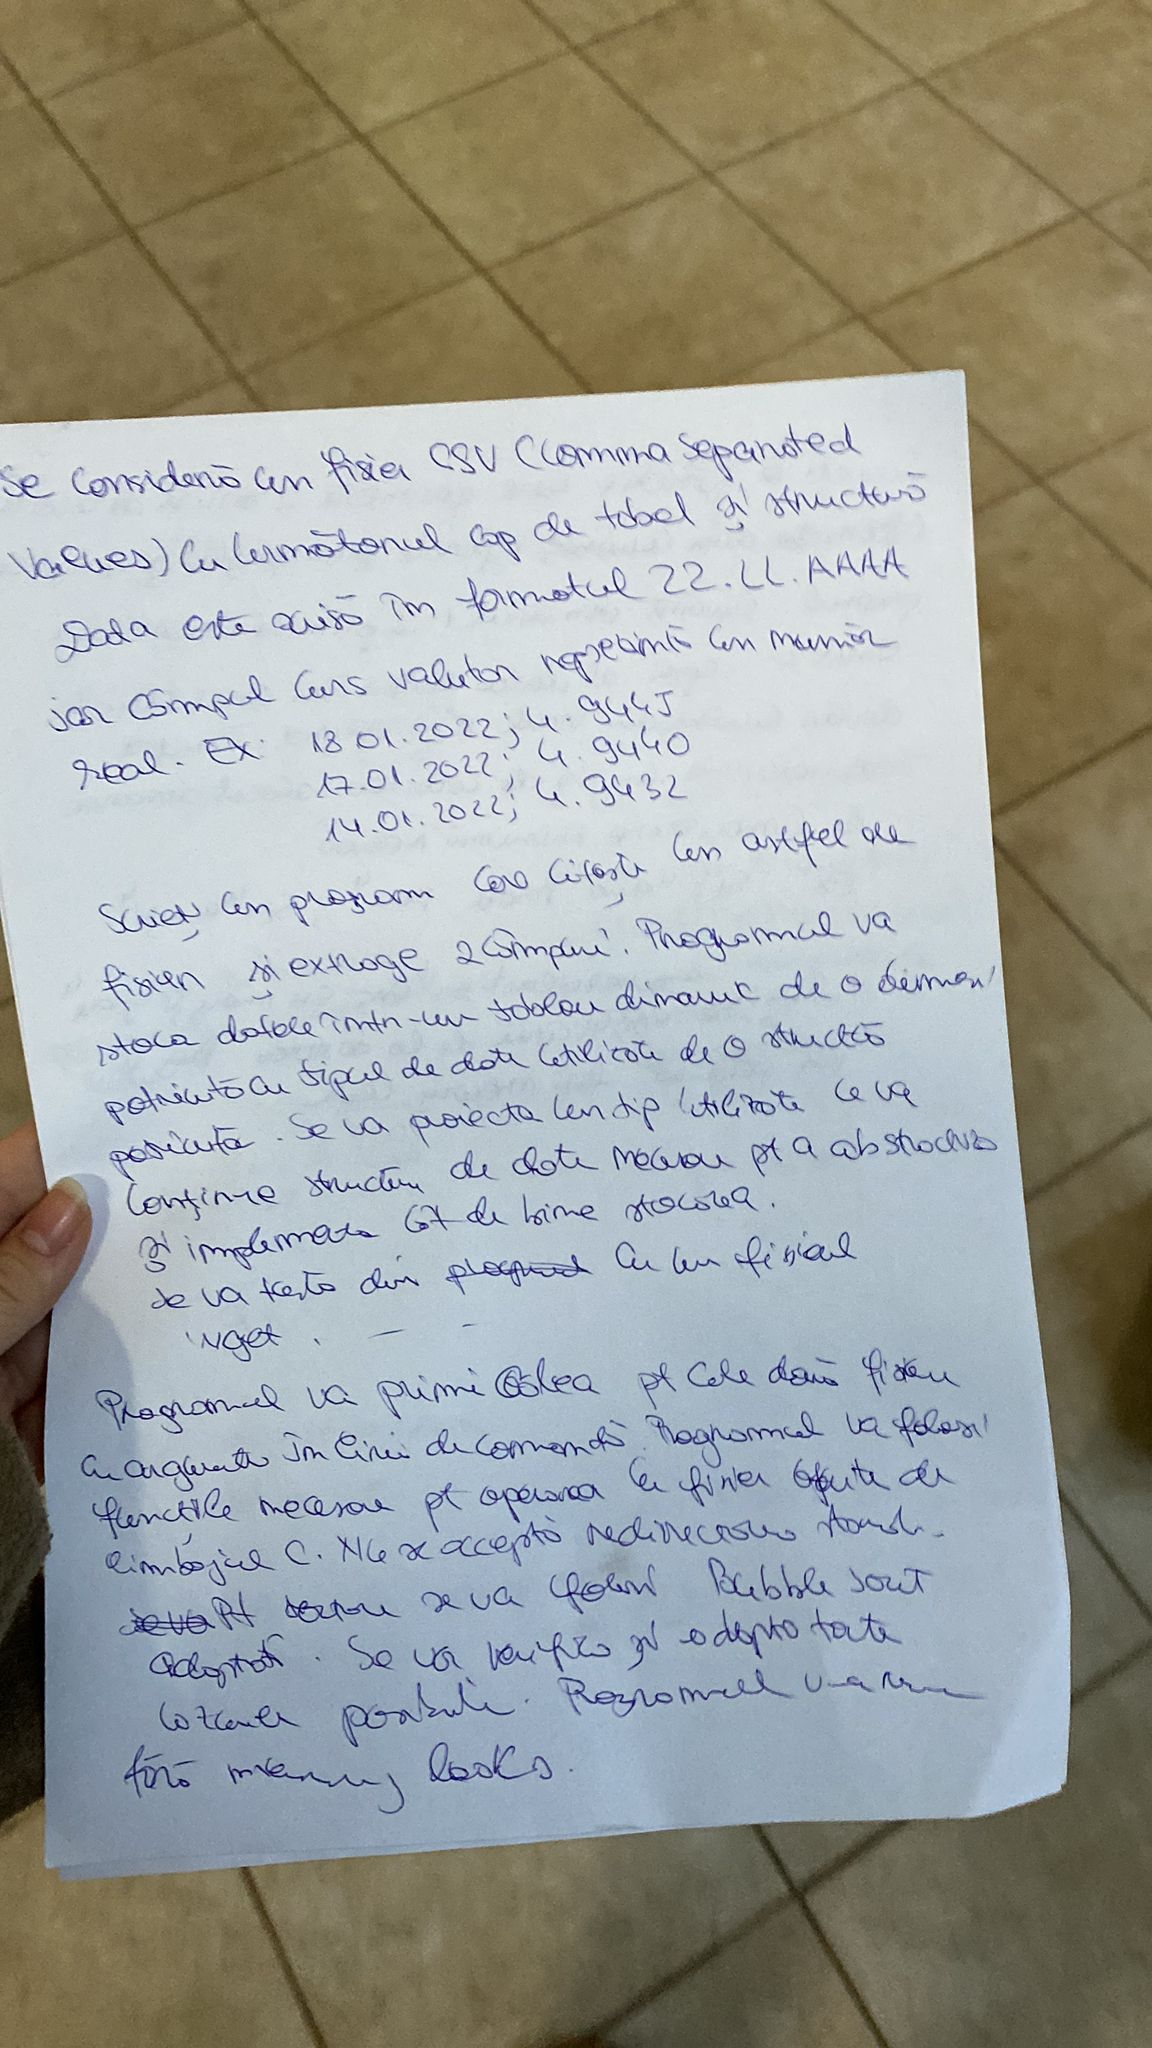 Se consideră un fisier CSV (Comma Separated
Values) cu următorul cap de tabel și structură
Data este scrisă în formatul ZZ.LL.AAAA
iar câmpul curs valutar reprezintă un număr
real. Ex: 18 01.2022; 4.9445
17.01.2022; 4.9440
14.01.2022; 4.9432
Scrieți un program care citește un astfel de
fisier și extrage 2 câmpuri. Programul va
stoca datele într-un tablou dinamic de o dimens
potrivită cu tipul de date utilizate de o structă
potrivită. Se va proiecta un tip utilizate ce va
conține structuri de date necesare pt a abstractiza
și implementa cât de bine stocarea.
Se va testa din cu un fisierul
wget.
Programul va primi calea pt cele două fisiere
ca argumente în linie de comandă. Programul va folosi
funcțiile necesare pt operarea cu fisier oferite de
limbajul C. Nu se acceptă redirectarea
Pt sortare se va folosi Bubble sort
adaptat. Se va verifica și adapta toate
cazurile posibile. Programul va
fără memory leaks.